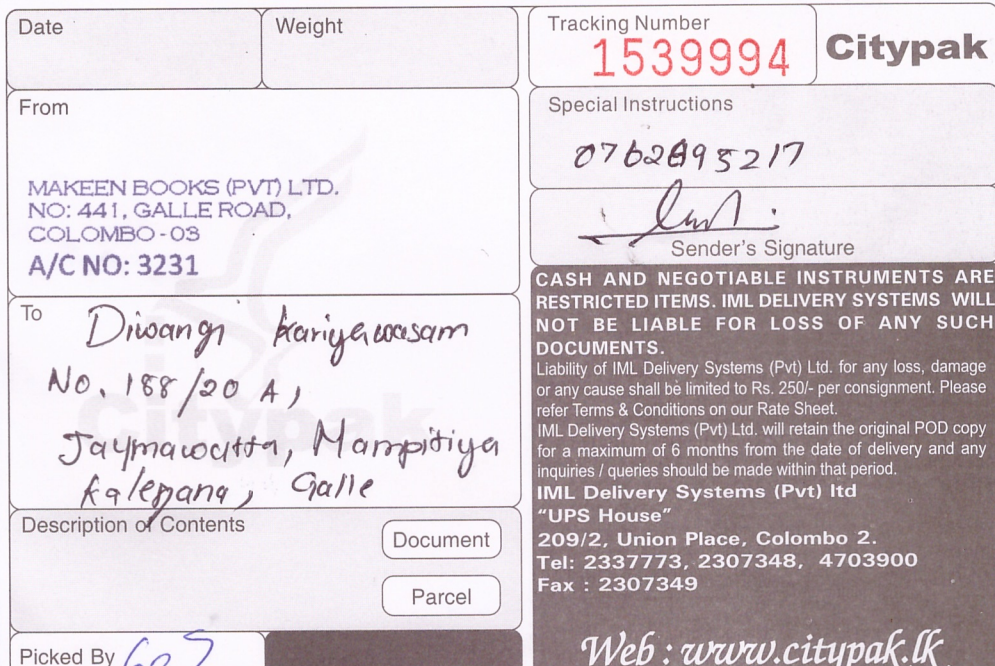 Date
Weight
Tracking Number
1539994
Citypak
From
MAKEEN BOOKS (PVT) LTD.
NO: 441, GALLE ROAD,
COLOMBO - 03
A/C NO: 3231
Special Instructions
Sender's Signature
To
Diwangi Kariyawasam
No. 188/20 A,
Jaymawatta, Mampitiya
Kalegana, Galle
Citypak
Description of Contents
Document
Parcel
Picked By
CASH AND NEGOTIABLE INSTRUMENTS ARE
RESTRICTED ITEMS. IML DELIVERY SYSTEMS WILL
NOT BE LIABLE FOR LOSS OF ANY SUCH
DOCUMENTS.
Liability of IML Delivery Systems (Pvt) Ltd. for any loss, damage
or any cause shall be limited to Rs. 250/- per consignment. Please
refer Terms & Conditions on our Rate Sheet.
IML Delivery Systems (Pvt) Ltd. will retain the original POD copy
for a maximum of 6 months from the date of delivery and any
inquiries / queries should be made within that period.
IML Delivery Systems (Pvt) ltd
“UPS House”
209/2, Union Place, Colombo 2.
Tel: 2337773, 2307348, 4703900
Fax : 2307349
Web : www.citypak.lk